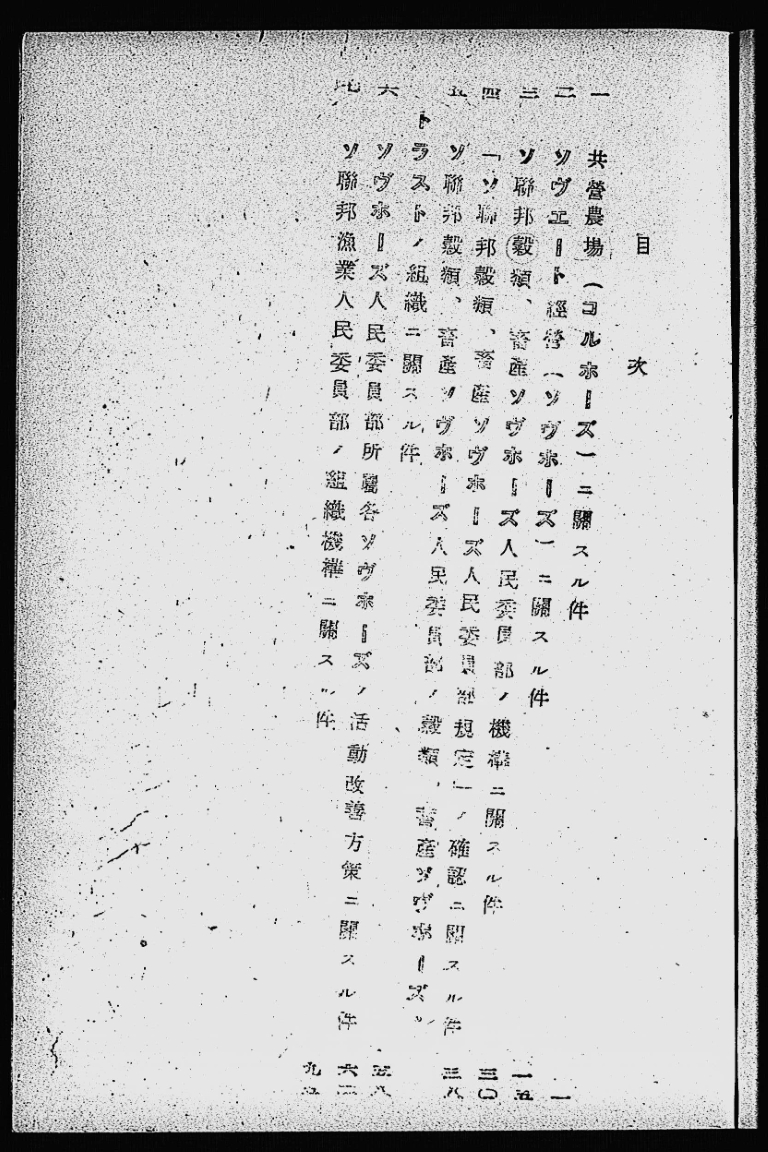 目次
一 共營農場(コルホーズ)ニ關スル件 一
二 ソヴエート經營(ソヴホーズ)ニ關スル件 一五
三 ソ聯邦穀類、畜產ソヴホーズ人民委員部ノ機構ニ關スル件 三〇
四 「ソ聯邦穀類、畜產ソヴホーズ人民委員部規定」ノ確認ニ關スル件 三八
五 ソ聯邦穀類、畜產ソヴホーズ人民委員部ノ穀類、畜產ソヴホーズ、
トラストノ組織ニ關スル件 五八
六 ソヴホーズ人民委員部所屬各ソヴホーズノ活動改善方策ニ關スル件 六二
七 ソ聯邦漁業人民委員部ノ組織機構ニ關スル件 九五